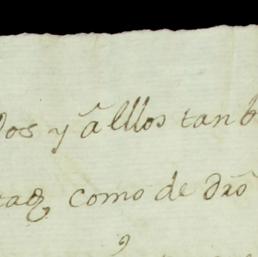 dos y â lllos tanb
taq como de drô